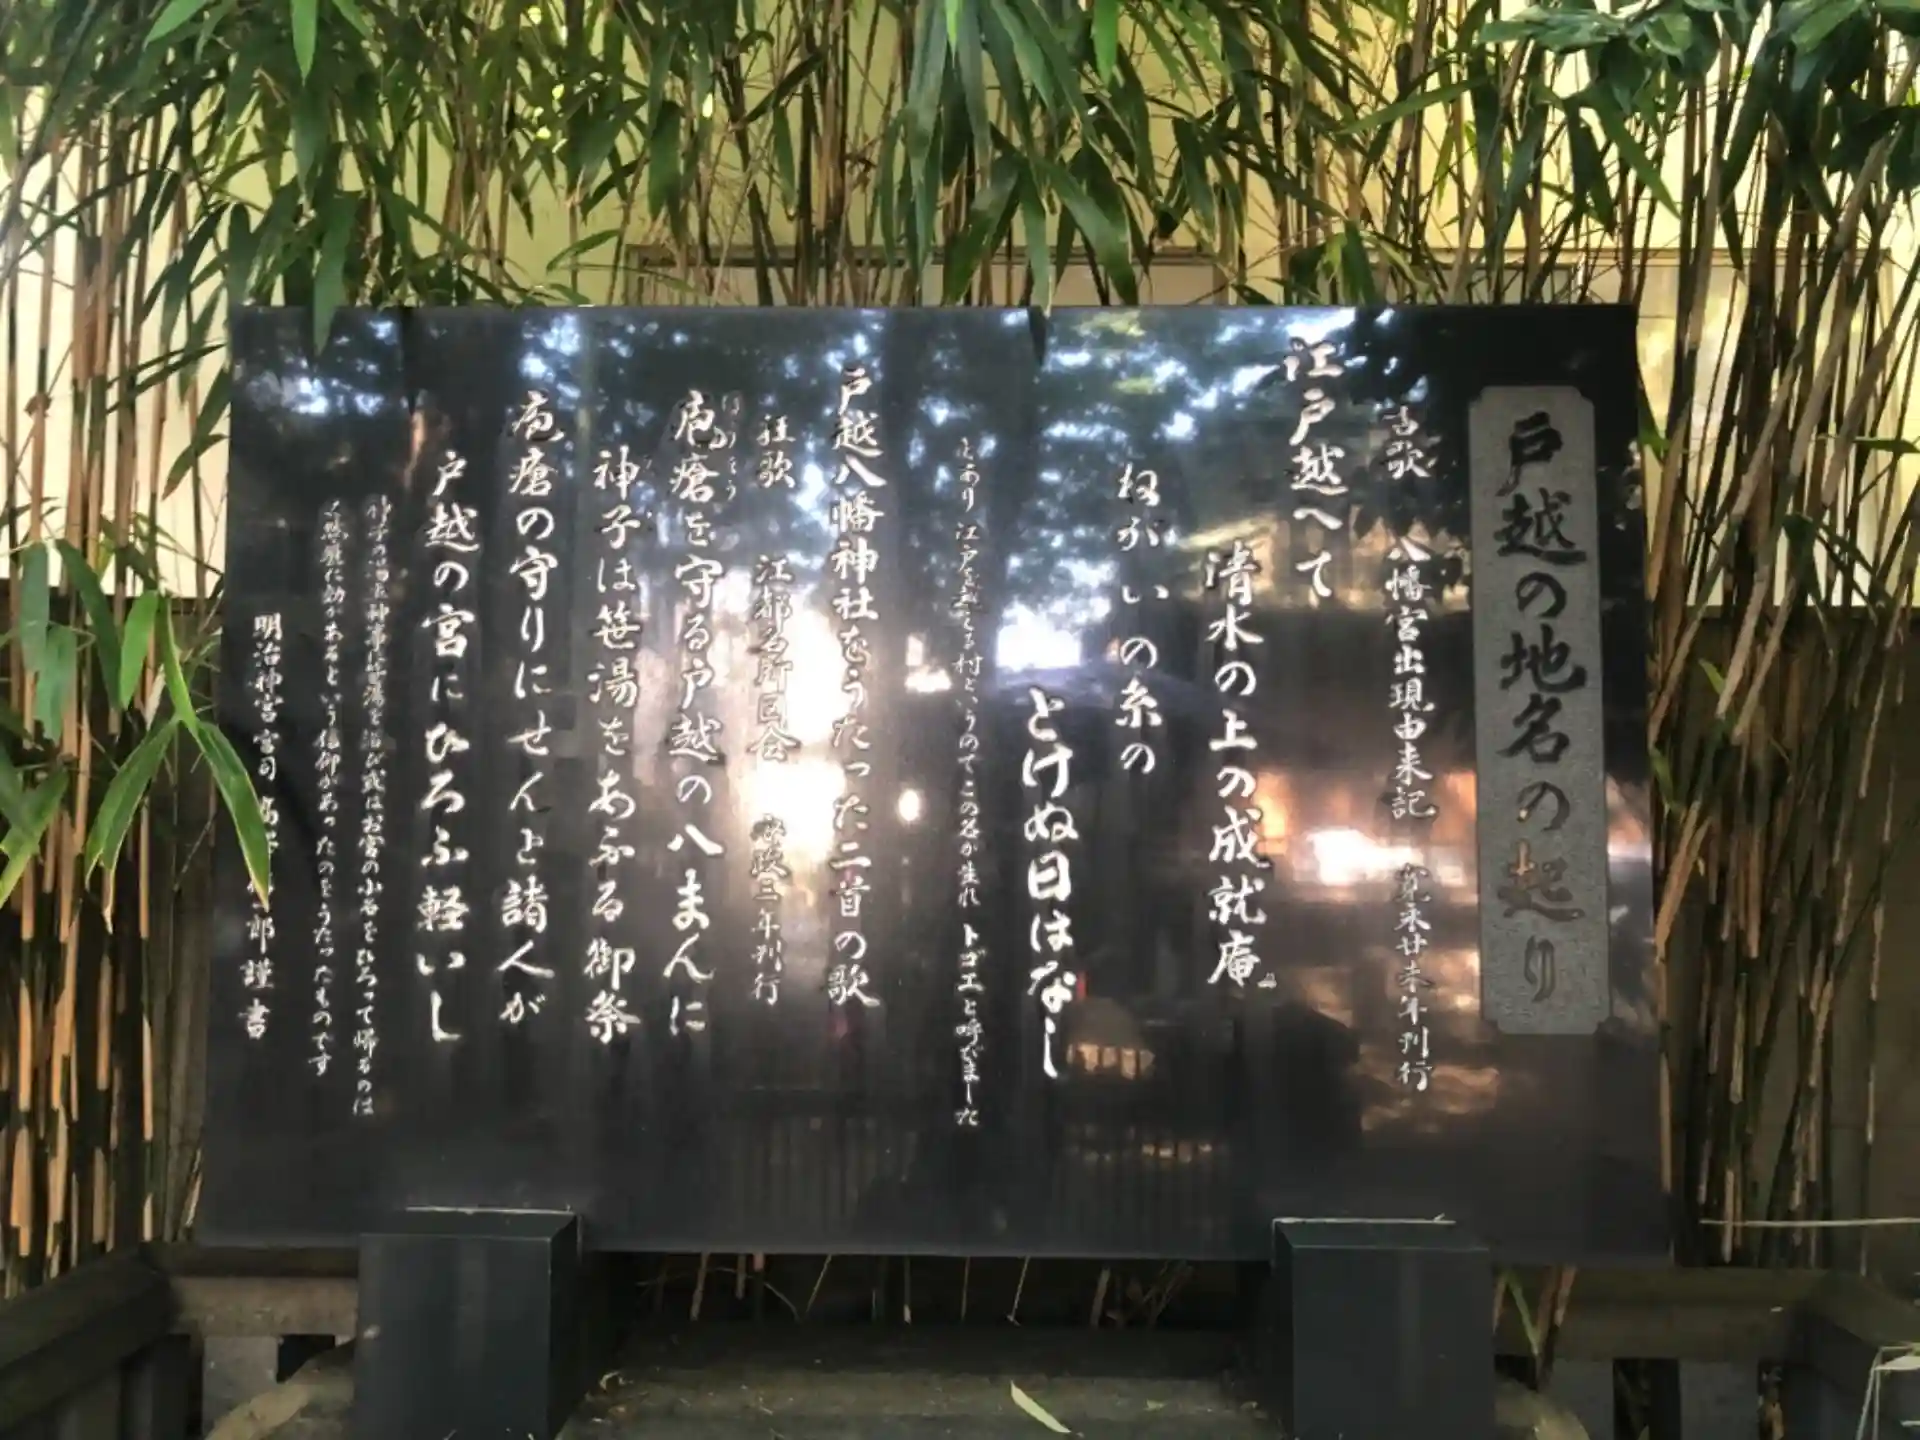 戸越の地名の起り
古歌 八幡宮出現由来記 寛永廿未年刊行
江戸越へて
清水の上の成就庵
ねがいの糸の
とけぬ日はなし
とあり 江戸を越える村というのでこの名が生れ トゴエと呼びました
戸越八幡神社をうたった二首の歌
狂歌 江都名所図会 安政三年刊行
疱瘡を守る戸越の八まんに
ほうそう
神子は笹湯をあふる御祭
疱瘡の守りにせんと諸人が
戸越の宮にひろふ軽いし
神子の湯立神事に笹湯を浴び或はお宮の小石をひろって帰るのは
く悪疫に効があるという信仰があったのをうたったものです
明治神宮宮司 高 郎 謹書